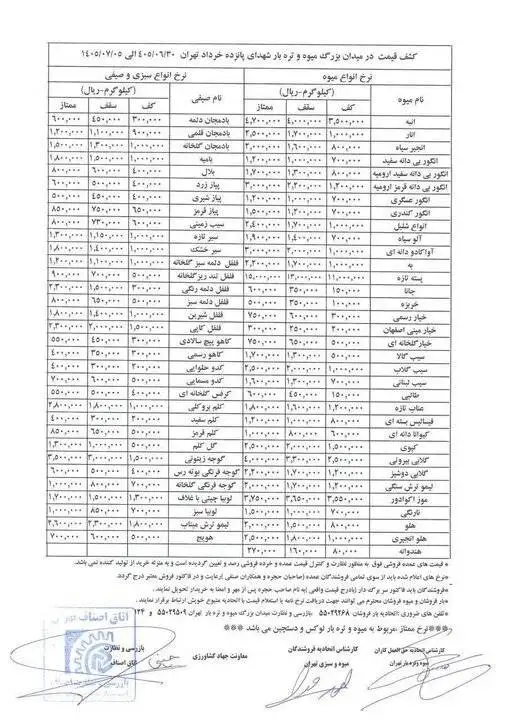 کشف قیمت در میدان بزرگ میوه و تره بار شهدای پانزده خرداد تهران ۱۴۰۵/۰۶/۳۰ الی ۱۴۰۵/۰۷/۰۵
نرخ انواع میوه
(کیلوگرم-ریال)
نام میوه کف سقف ممتاز
انبه ۳,۵۰۰,۰۰۰ ۴,۰۰۰,۰۰۰ ۴,۷۰۰,۰۰۰
انار ۱,۰۰۰,۰۰۰ ۱,۷۰۰,۰۰۰ ۲,۵۰۰,۰۰۰
انجیر سیاه ۸۰۰,۰۰۰ ۱,۶۰۰,۰۰۰ ۲,۰۰۰,۰۰۰
انگور بی دانه سفید ۷۰۰,۰۰۰ ۱,۰۰۰,۰۰۰ ۱,۲۰۰,۰۰۰
انگور بی دانه سفید ارومیه ۸۰۰,۰۰۰ ۱,۳۰۰,۰۰۰ ۱,۷۰۰,۰۰۰
انگور بی دانه قرمز ارومیه ۱,۲۰۰,۰۰۰ ۲,۲۰۰,۰۰۰ ۳,۰۰۰,۰۰۰
انگور عسگری ۷۰۰,۰۰۰ ۱,۰۰۰,۰۰۰ ۱,۲۰۰,۰۰۰
انگور کندری ۷۰۰,۰۰۰ ۱,۲۰۰,۰۰۰ ۱,۵۰۰,۰۰۰
انواع شلیل ۱,۰۰۰,۰۰۰ ۱,۷۰۰,۰۰۰ ۲,۴۰۰,۰۰۰
آلو سیاه ۷۰۰,۰۰۰ ۱,۴۰۰,۰۰۰ ۱,۹۰۰,۰۰۰
آواکادو دانه ای ۱,۰۰۰,۰۰۰ ۲,۰۰۰,۰۰۰ ۳,۰۰۰,۰۰۰
به ۱,۰۰۰,۰۰۰ ۱,۷۰۰,۰۰۰ ۲,۲۰۰,۰۰۰
پسته تازه ۱۳,۰۰۰,۰۰۰ ۱۵,۰۰۰,۰۰۰
۱۵۰,۰۰۰ ۳۵۰,۰۰۰ ۶۰۰,۰۰۰
خربزه ۱۵۰,۰۰۰ ۳۵۰,۰۰۰ ۵۰۰,۰۰۰
خیار رسمی ۳۰۰,۰۰۰ ۶۰۰,۰۰۰ ۷۵۰,۰۰۰
خیار مینی اصفهان ۲۰۰,۰۰۰ ۲۵۰,۰۰۰ ۳۰۰,۰۰۰
خیار گلخانه ای ۳۵۰,۰۰۰ ۶۰۰,۰۰۰ ۷۵۰,۰۰۰
سیب گالا ۵۰۰,۰۰۰ ۱,۳۰۰,۰۰۰ ۱,۷۰۰,۰۰۰
سیب گلاب ۱,۰۰۰,۰۰۰ ۲,۰۰۰,۰۰۰ ۲,۵۰۰,۰۰۰
سیب لبنانی ۷۰۰,۰۰۰ ۱,۳۰۰,۰۰۰ ۱,۶۰۰,۰۰۰
طالبی ۱۵۰,۰۰۰ ۴۵۰,۰۰۰ ۶۰۰,۰۰۰
عناب تازه ۱,۲۰۰,۰۰۰ ۱,۶۰۰,۰۰۰ ۱,۸۰۰,۰۰۰
فیسالیس بسته ای ۸۰۰,۰۰۰ ۱,۰۰۰,۰۰۰ ۱,۲۰۰,۰۰۰
کیوانا دانه ای ۶۰۰,۰۰۰ ۸۰۰,۰۰۰ ۱,۰۰۰,۰۰۰
کیوی ۱,۵۰۰,۰۰۰ ۲,۰۰۰,۰۰۰ ۲,۵۰۰,۰۰۰
گلابی بیروتی ۲,۰۰۰,۰۰۰ ۳,۳۰۰,۰۰۰ ۴,۰۰۰,۰۰۰
گلابی دوشیز ۱,۰۰۰,۰۰۰ ۱,۷۰۰,۰۰۰ ۲,۲۰۰,۰۰۰
لیمو ترش سنگی ۱,۲۰۰,۰۰۰ ۱,۷۰۰,۰۰۰ ۲,۰۰۰,۰۰۰
موز اکوادور ۳,۵۵۰,۰۰۰ ۳,۶۵۰,۰۰۰ ۳,۷۵۰,۰۰۰
نارنگی ۷۰۰,۰۰۰ ۱,۰۰۰,۰۰۰ ۱,۵۰۰,۰۰۰
هلو ۱,۰۰۰,۰۰۰ ۱,۷۰۰,۰۰۰ ۲,۵۰۰,۰۰۰
هلو انجیری ۱,۰۰۰,۰۰۰ ۱,۸۰۰,۰۰۰ ۲,۵۰۰,۰۰۰
هندوانه ۸۰,۰۰۰ ۱۶۰,۰۰۰ ۲۷۰,۰۰۰
نرخ انواع سبزی و صیفی
(کیلوگرم-ریال)
نام صیفی کف سقف ممتاز
بادمجان دلمه ۳۰۰,۰۰۰ ۴۵۰,۰۰۰ ۶۰۰,۰۰۰
بادمجان قلمی ۹۰۰,۰۰۰ ۱,۱۰۰,۰۰۰ ۱,۲۰۰,۰۰۰
بادمجان گلخانه ۱,۰۰۰,۰۰۰ ۱,۳۰۰,۰۰۰ ۱,۵۰۰,۰۰۰
بامیه ۱,۰۰۰,۰۰۰ ۱,۵۰۰,۰۰۰ ۱,۸۰۰,۰۰۰
بلال ۴۰۰,۰۰۰ ۶۰۰,۰۰۰ ۸۰۰,۰۰۰
پیاز زرد ۴۰۰,۰۰۰ ۵۰۰,۰۰۰ ۶۰۰,۰۰۰
پیاز شیری ۴۰۰,۰۰۰ ۴۵۰,۰۰۰ ۵۰۰,۰۰۰
پیاز قرمز ۶۵۰,۰۰۰ ۷۵۰,۰۰۰ ۸۵۰,۰۰۰
سیب زمینی ۶۰۰,۰۰۰ ۷۳۰,۰۰۰ ۸۰۰,۰۰۰
سیر تازه ۱,۰۰۰,۰۰۰ ۱,۱۵۰,۰۰۰ ۱,۳۰۰,۰۰۰
سیر خشک ۱,۰۰۰,۰۰۰ ۱,۴۰۰,۰۰۰ ۱,۸۰۰,۰۰۰
فلفل دلمه سبز گلخانه ۱,۰۰۰,۰۰۰
فلفل تند ریزگلخانه ۵۰۰,۰۰۰ ۷۰۰,۰۰۰ ۹۰۰,۰۰۰
فلفل دلمه رنگی ۱,۲۰۰,۰۰۰ ۱,۵۰۰,۰۰۰ ۲,۳۰۰,۰۰۰
فلفل دلمه سبز ۵۰۰,۰۰۰ ۶۵۰,۰۰۰ ۸۰۰,۰۰۰
فلفل شیرین ۱,۰۰۰,۰۰۰ ۱,۴۰۰,۰۰۰ ۱,۸۰۰,۰۰۰
فلفل کاپی ۱,۵۰۰,۰۰۰ ۲,۰۰۰,۰۰۰ ۲,۳۰۰,۰۰۰
کاهو پیچ سالادی ۳۰۰,۰۰۰ ۴۵۰,۰۰۰ ۵۵۰,۰۰۰
کاهو رسمی ۳۰۰,۰۰۰ ۳۵۰,۰۰۰ ۴۰۰,۰۰۰
کدو حلوایی ۲۰۰,۰۰۰ ۳۰۰,۰۰۰ ۴۰۰,۰۰۰
کدو مسمایی ۵۰۰,۰۰۰ ۶۰۰,۰۰۰ ۷۰۰,۰۰۰
کرفس گلخانه ای ۴۰۰,۰۰۰ ۵۰۰,۰۰۰ ۵۵۰,۰۰۰
کلم بروکلی ۱,۰۰۰,۰۰۰ ۱,۸۰۰,۰۰۰ ۲,۸۰۰,۰۰۰
کلم سفید ۲۰۰,۰۰۰ ۳۰۰,۰۰۰ ۴۰۰,۰۰۰
کلم قرمز ۵۰۰,۰۰۰ ۶۵۰,۰۰۰ ۸۵۰,۰۰۰
گل کلم ۵۰۰,۰۰۰ ۱,۰۰۰,۰۰۰ ۱,۳۰۰,۰۰۰
گوجه زیتونی ۱,۵۰۰,۰۰۰ ۳,۰۰۰,۰۰۰ ۳,۵۰۰,۰۰۰
گوجه فرنگی بوته رس ۴۰۰,۰۰۰ ۵۰۰,۰۰۰ ۶۰۰,۰۰۰
گوجه فرنگی گلخانه ۷۰۰,۰۰۰ ۸۰۰,۰۰۰ ۱,۰۰۰,۰۰۰
لوبیا چیتی با غلاف ۱,۳۰۰,۰۰۰ ۱,۵۰۰,۰۰۰ ۱,۷۰۰,۰۰۰
لوبیا سبز ۷۰۰,۰۰۰ ۸۵۰,۰۰۰ ۱,۰۰۰,۰۰۰
لیمو ترش میناب ۱,۸۰۰,۰۰۰ ۲,۳۰۰,۰۰۰ ۲,۶۰۰,۰۰۰
هویج ۵۰۰,۰۰۰ ۶۰۰,۰۰۰ ۷۰۰,۰۰۰
* قیمت های عمده فروشی فوق به منظور نظارت و کنترل قیمت عمده و خرده فروشی رصد و تعیین گردیده است و به منزله خرید از تولید کننده نمی باشد.
*نرخ های اعلام شده باید از سوی تمامی فروشندگان عمده (صاحبان حجره و همکاران صنفی) رعایت و در فاکتور فروش معتبر درج گردد.
*فروشندگان باید فاکتور سر برگ دار (بادرج قیمت واقعی) به نام صاحب حجره پس از مهر و امضا به خریدار تحویل نمایند.
*بار فروشان و میوه فروشان محترم می توانند جهت دریافت نرخ نامه یا استعلام قیمت با اتحادیه متبوع خویش ارتباط برقرار نمایند.
*تلفن های ضروری: اتحادیه بار فروشان ۵۵۰۲۹۲۶۸ بازرسی و نظارت میدان بزرگ میوه و تره بار تهران ۵۵۰۲۹۵۰۹ و ۱۲۴
***نرخ ممتاز، مربوط به میوه و تره بار لوکس و دستچین می باشد ***
کارشناس اتحادیه حق العمل کاران
میوه و تره بار تهران
کارشناس اتحادیه فروشندگان
میوه و سبزی تهران
معاونت جهاد کشاورزی
بازرسی و نظارت
اتاق اصناف
اتاق اصناف تهران
بازرسی و نظارت اصناف